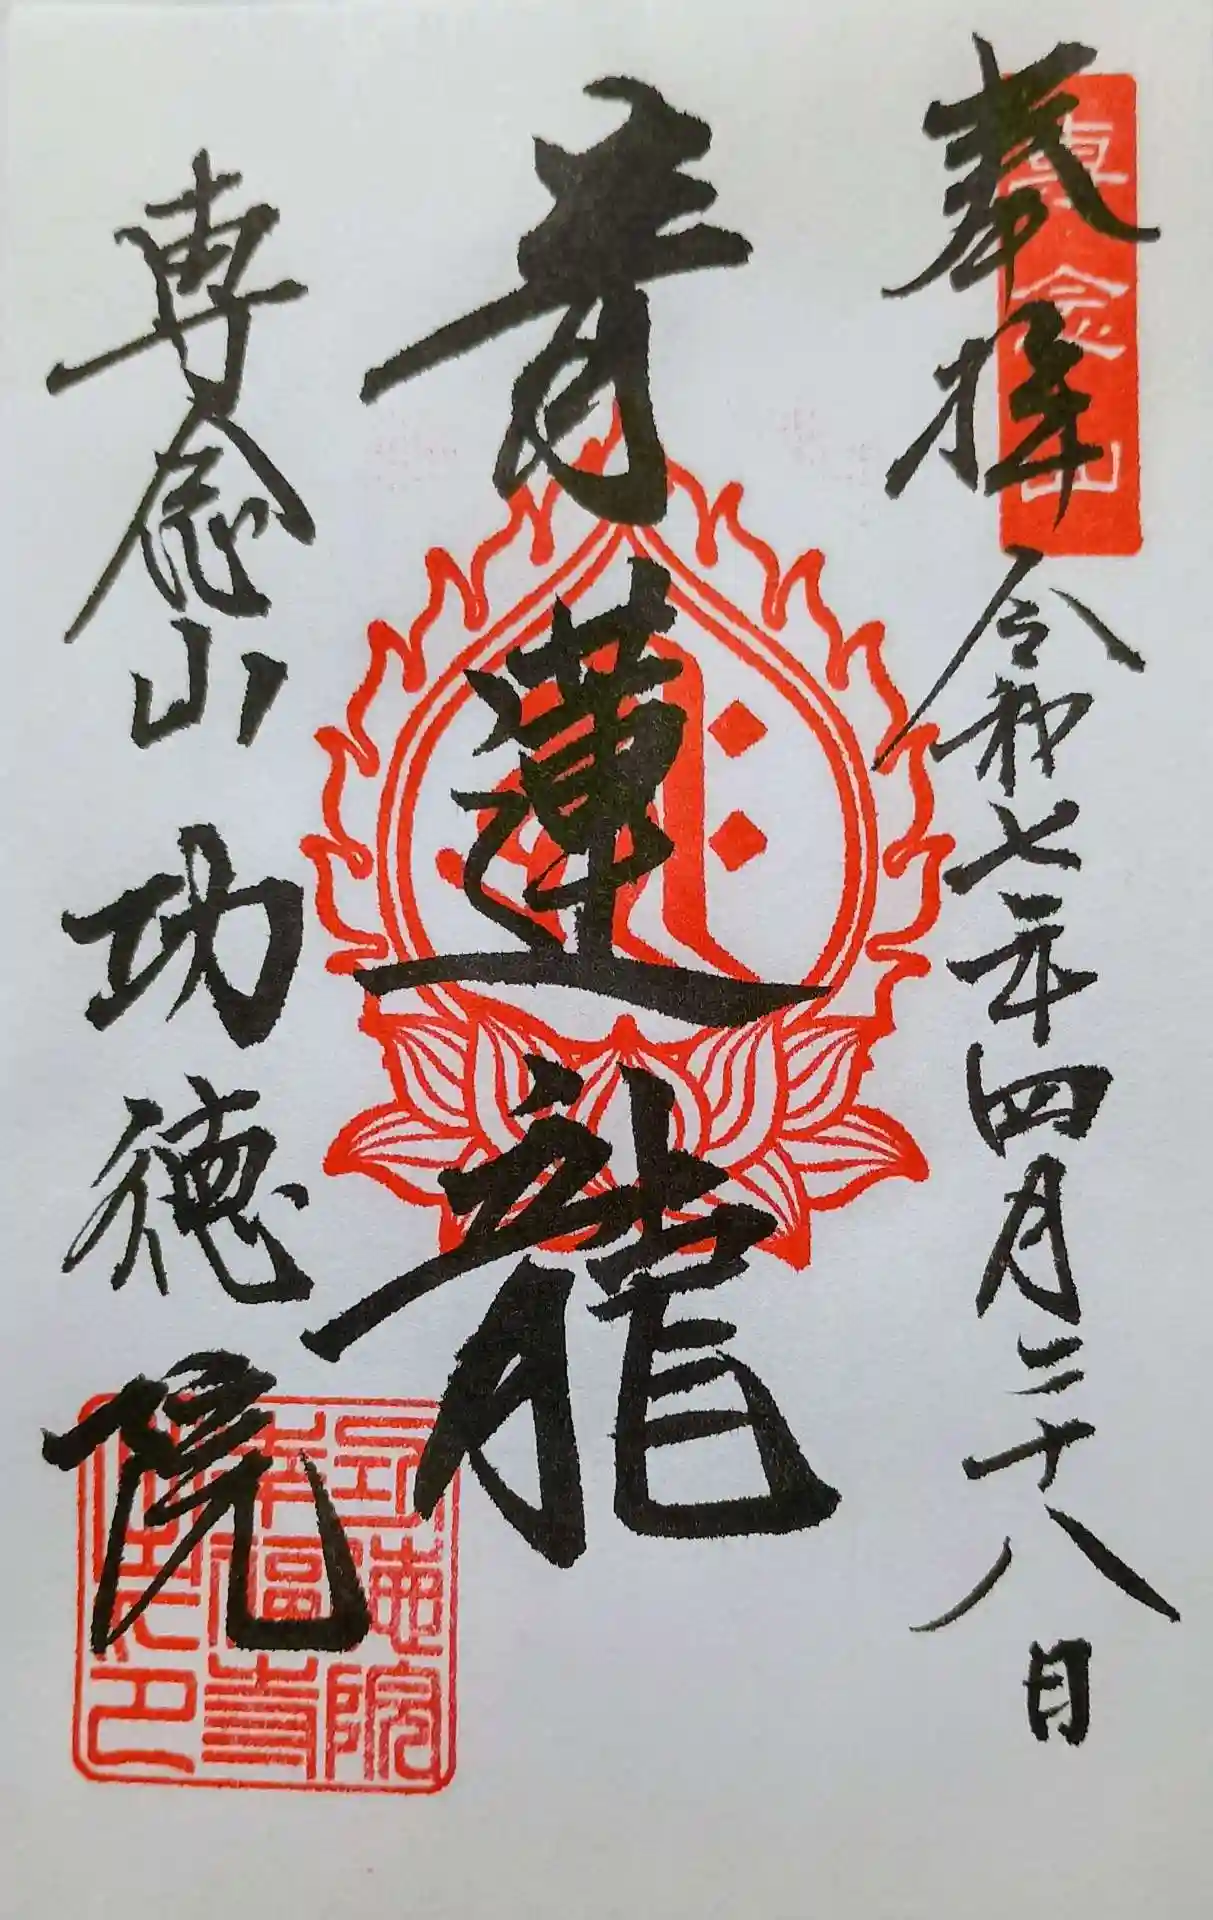 奉拝
令和七年四月二十八日
専念山
青蓮龍
専念山 功徳院